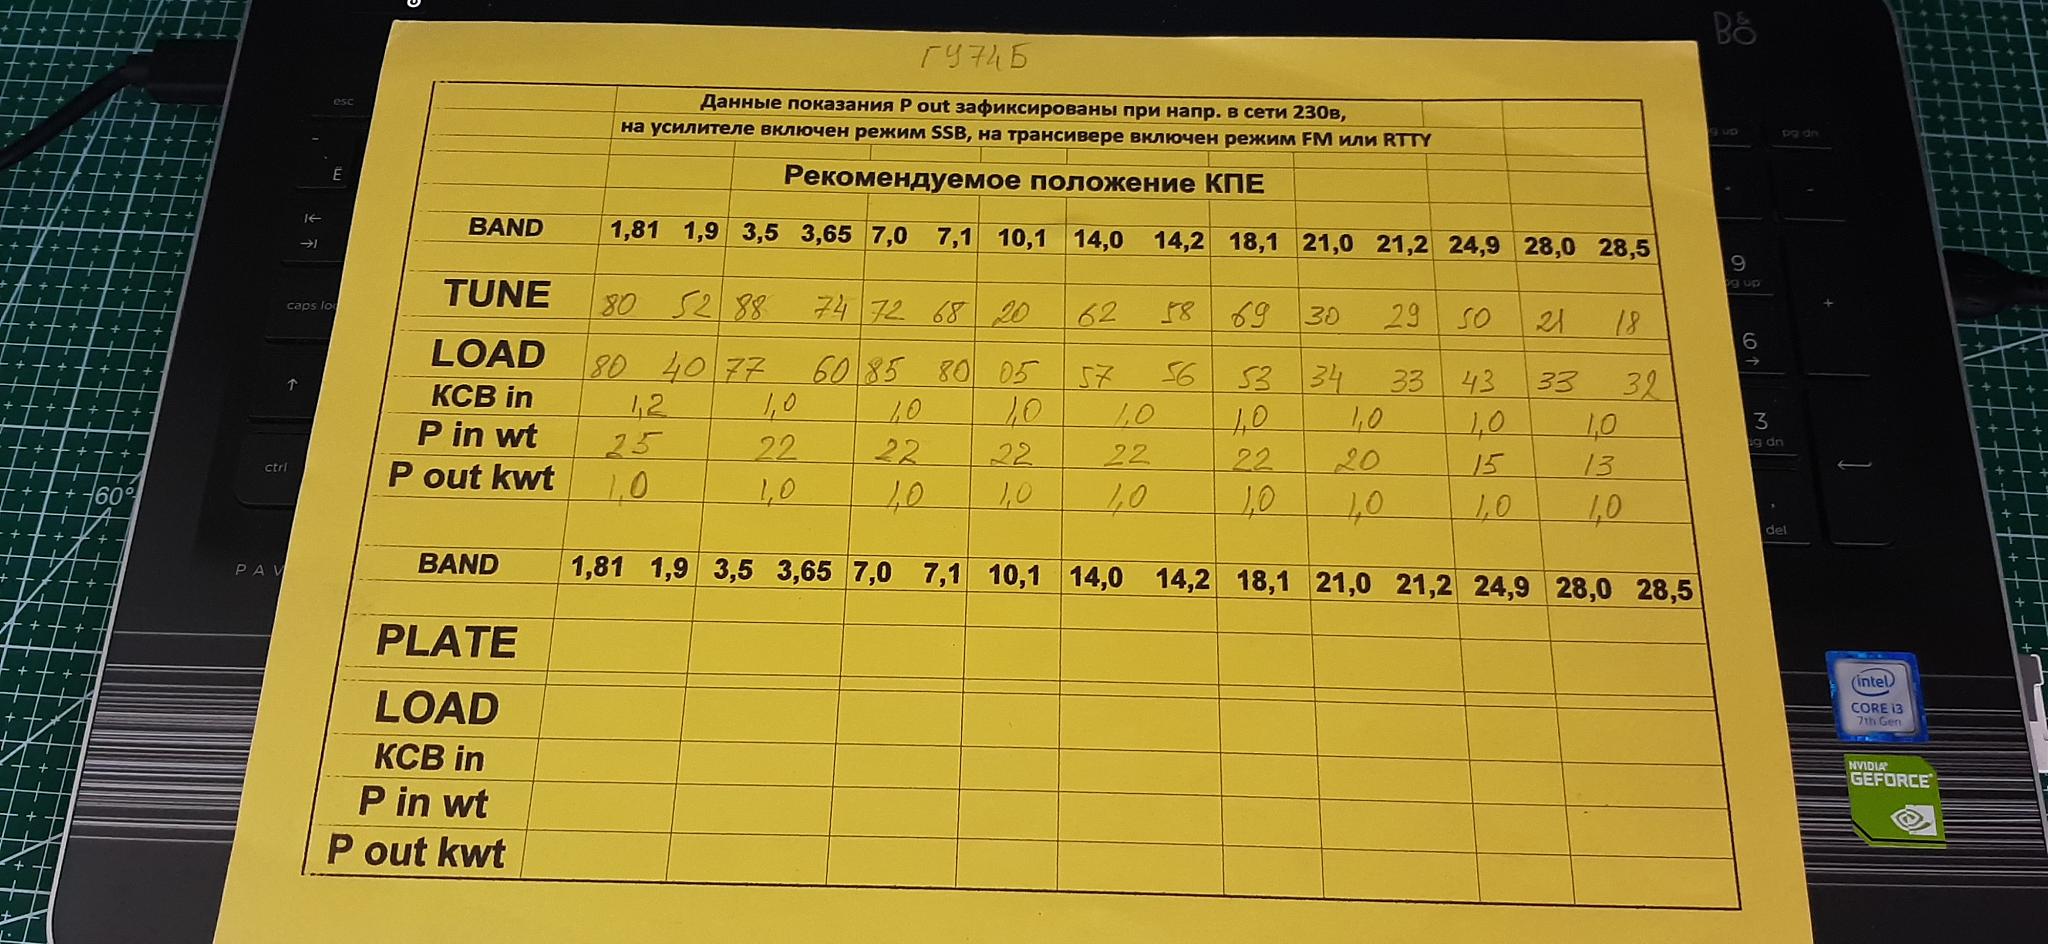 B&O
ГУ74Б
esc
Данные показания P out зафиксированы при напр. в сети 230в,
на усилителе включен режим SSB, на трансивере включен режим FM или RTTY
g up pg dn
Ё
Рекомендуемое положение КПЕ
BAND 1,81 1,9 3,5 3,65 7,0 7,1 10,1 14,0 14,2 18,1 21,0 21,2 24,9 28,0 28,5
9
g up
TUNE 80 52 88 74 72 68 20 62 58 69 30 29 50 21 18
caps lo
+
6
LOAD 80 40 77 60 85 80 05 57 56 53 34 33 43 33 32
КСВ in 1,2 1,0 1,0 1,0 1,0 1,0 1,0 1,0 1,0
3
g dn
P in wt 25 22 22 22 22 22 20 15 13
ctrl
P out kwt 1,0 1,0 1,0 1,0 1,0 1,0 1,0 1,0 1,0
60°
del
BAND 1,81 1,9 3,5 3,65 7,0 7,1 10,1 14,0 14,2 18,1 21,0 21,2 24,9 28,0 28,5
PAV
PLATE
LOAD
КСВ in
P in wt
P out kwt
intel
CORE i3
7th Gen
NVIDIA
GEFORCE